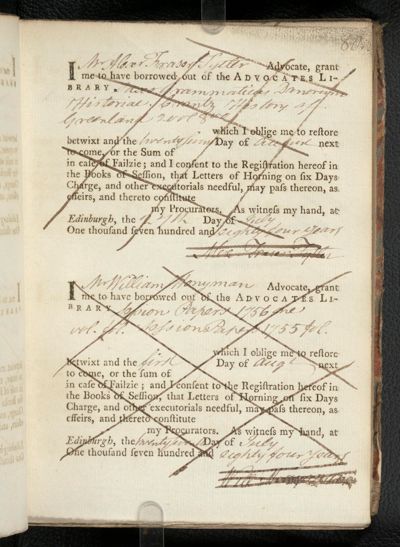 I Mr Alexr Fraser Tytler Advocate, grant
me to have borrowed out of the ADVOCATES LI-
BRARY. Grammaticus
Historiae History of
Greenland 2 vol
which I oblige me to restore
betwixt and the twenty Day of August next
to come, or the Sum of
in case of Failzie; and I consent to the Registration hereof in
the Books of Session, that Letters of Horning on six Days
Charge, and other executorials needful, may pass thereon, as
effeirs, and thereto constitute
my Procurators. As witness my hand, at
Edinburgh, the Day of July
One thousand seven hundred and eighty four years
Alex Fraser Tytler
I Mr William Honyman Advocate, grant
me to have borrowed out of the ADVOCATES LI-
BRARY Session Papers 1756
vol. Session Papers 1755 fol.
which I oblige me to restore
betwixt and the first Day of Augt next
to come, or the sum of
in case of Failzie; and I consent to the Registration hereof in
the Books of Session, that Letters of Horning on six Days
Charge, and other executorials needful, may pass thereon, as
effeirs, and thereto constitute
my Procurators. As witness my hand, at
Edinburgh, the Day of July
One thousand seven hundred and eighty four years